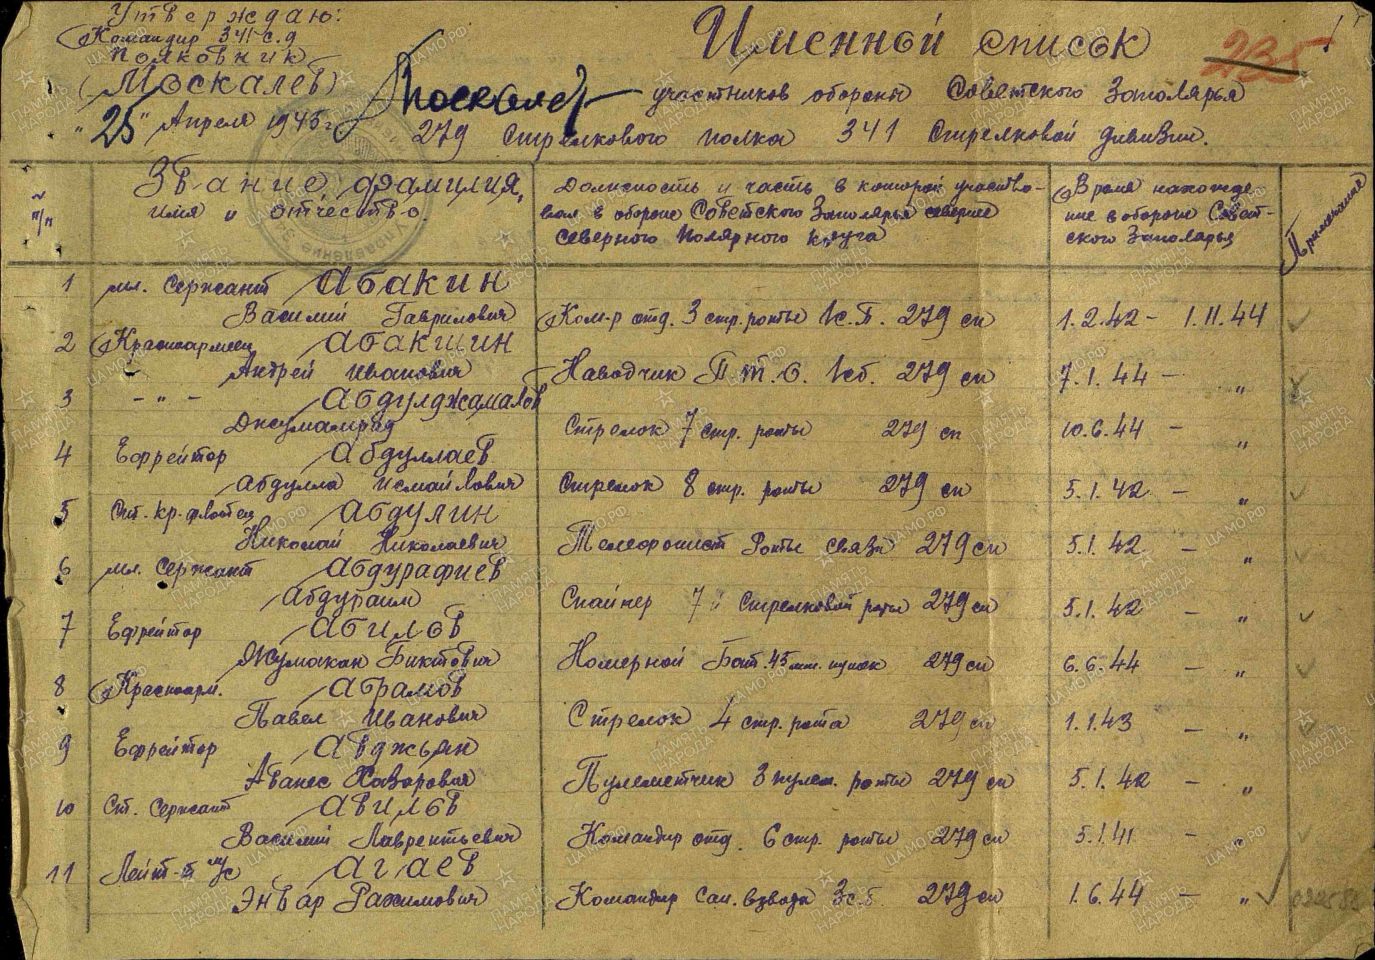 Утверждаю:
Командир 341 с.д
Полковник
(Москалев)
"25" Апреля 1945 г.
Именной список
235
1
участников обороны Советского Заполярья
279 Стрелкового полка 341 Стрелковой дивизии.
№ п/п
Звание фамилия,
имя и отчество.
Должность и часть в которой участво-
вал в обороне Советского Заполярья севернее
Северного Полярного круга
Время нахожде
ние в обороне Совет-
ского Заполярья
Примечание
1 мл. сержант Абакин
Василий Гаврилович Ком-р отд. 3 стр. роты 279 сп 1.2.42 - 1.11.44
2 Красноармеец Абакшин
Андрей Иванович Наводчик П.Т.О. 1сб. 279 сп 7.1.44 - "
3 - " - Абдулджамалов
Джумамрад Стрелок 7 стр. роты 279 сп 10.6.44 - "
4 Ефрейтор Абдуллаев
Абдулла Исмайлович Стрелок 8 стр. роты 279 сп 5.1.42 - "
5 Ст. кр. флотец Абдулин
Николай Николаевич Телефонист Роты связи 279 сп 5.1.42 - "
6 мл. сержант Абдурафиев
Абдураим Снайпер 7 й Стрелковой роты 279 сп 5.1.42 - "
7 Ефрейтор Абилов
Жумакан Биктович Номерной Бат. 45 мм. пушек 279 сп 6.6.44 - "
8 Красноарм. Абрамов
Павел Иванович Стрелок 4 стр. рота 279 сп 1.1.43 - "
9 Ефрейтор Авджьян
Аванес Хазарович Пулеметчик 3 пулем. роты 279 сп 5.1.42 - "
10 Ст. сержант Авилов
Василий Лаврентьевич Командир отд. 6 стр. роты 279 сп 5.1.41 - "
11 Лейт-т м/с Агаев
Энвар Рахимович Командир сан. взвода 3с.б. 279 сп 1.6.44 - "